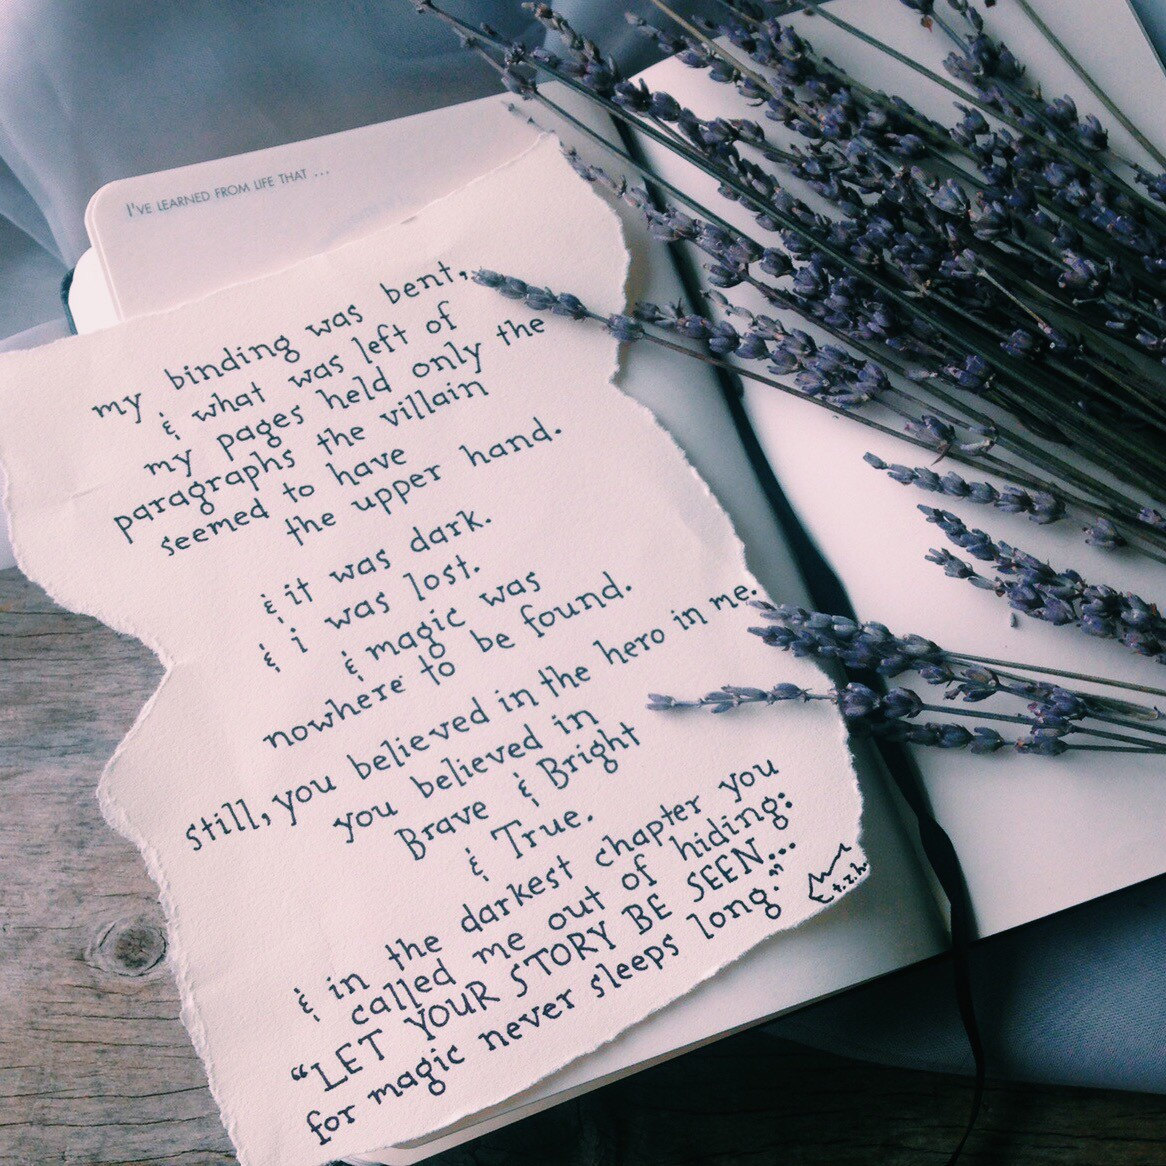 I'VE LEARNED FROM LIFE THAT ...
my binding was bent,
& what was left of
my pages held only the
paragraphs the villain
seemed to have
the upper hand.
& it was dark.
& i was lost.
& magic was
nowhere to be found.
still, you believed in the hero in me.
you believed in
Brave & Bright
& True.
& in the darkest chapter you
called me out of hiding:
"LET YOUR STORY BE SEEN...
for magic never sleeps long."
t.z.h.